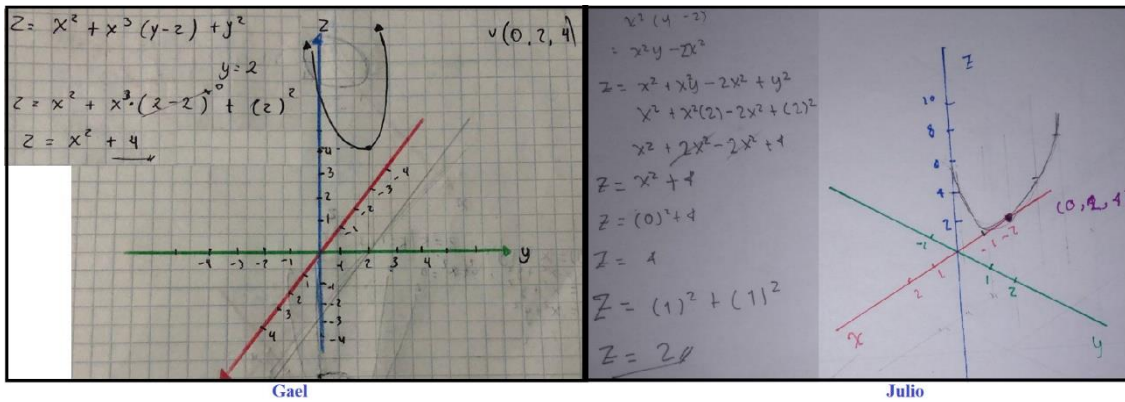 Z = x² + x³ (y-2) + y²
y = 2
Z = x² + x³ · (2-2)⁰ + (2)²
Z = x² + 4
V(0, 2, 4)
Z
4
3
2
1
-4
-3
-2
-1
-4 -3 -2 -1 1 2 3 4 y
1
2
3
4
-1
-2
-3
-4
Gael
x² (y - 2)
= x²y - 2x²
Z = x² + x²y - 2x² + y²
x² + x²(2) - 2x² + (2)²
x² + 2x² - 2x² + 4
Z = x² + 4
Z = (0)² + 4
Z = 4
Z = (1)² + (1)²
Z = 2
Z
10
8
6
4
2
(0, 2, 4)
-1 -2
1
2
1
2
x
y
Julio